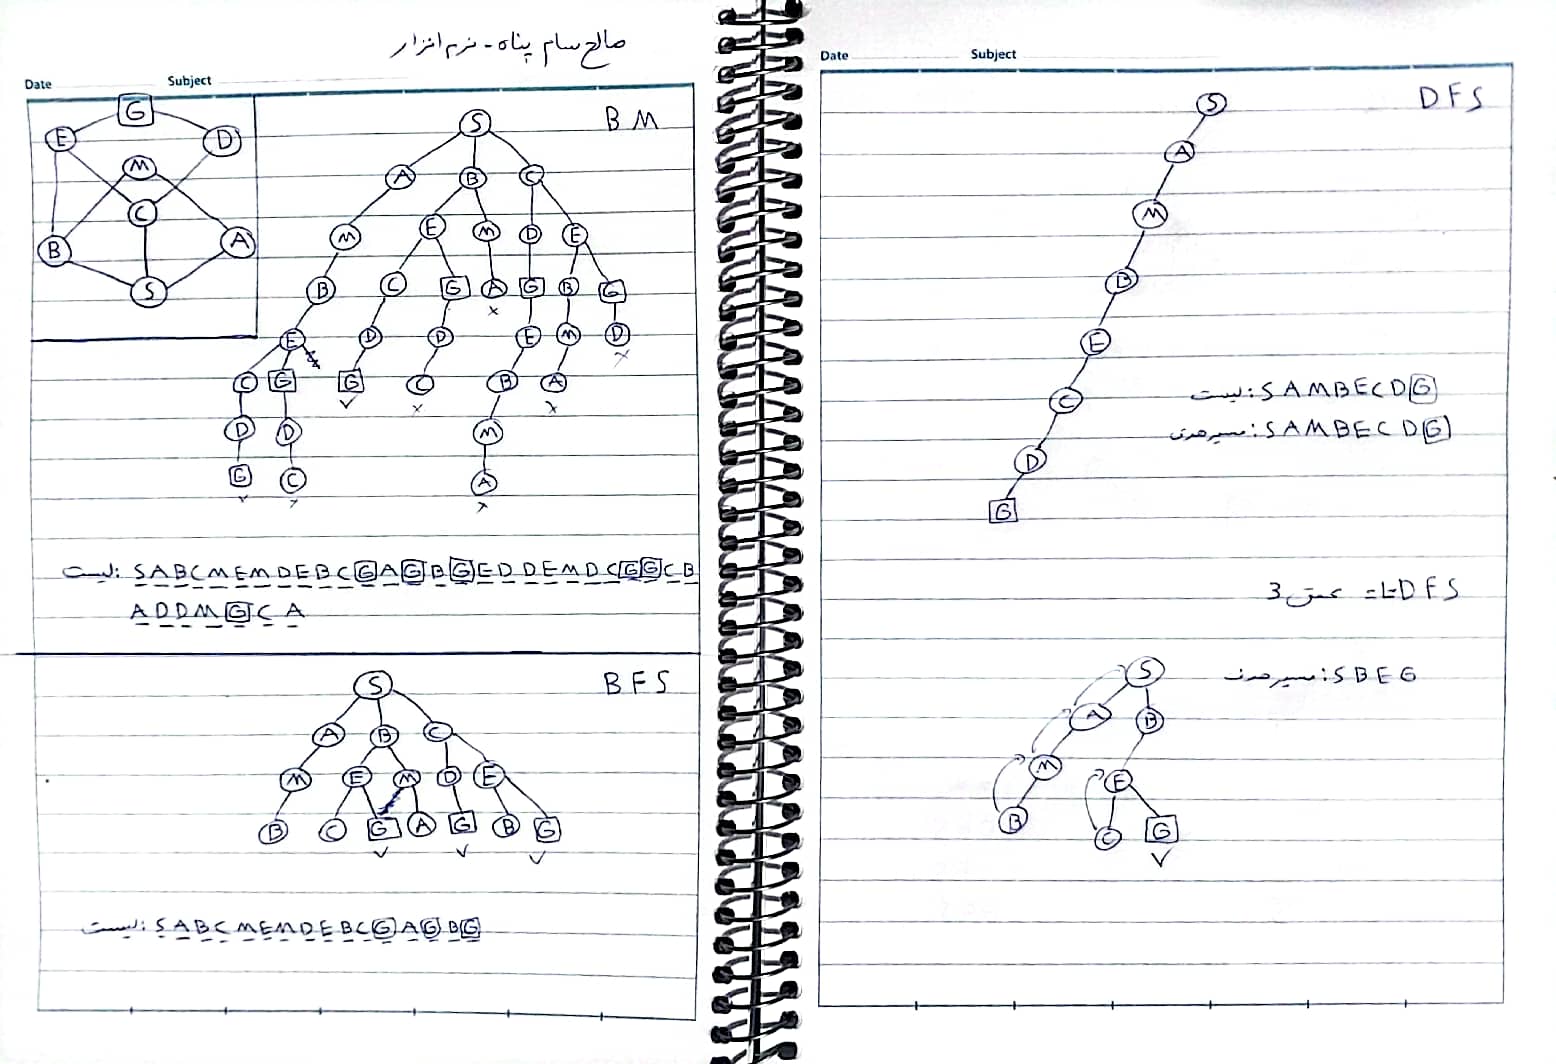 صالح سام پناه - نرم افزار
Date Subject
B M
G
E D
M
C
B A
S
S
A B C
M E M D E
B C G A G B G
E D D E M D
C G G C B A
D D M
G C A
لیست: S A B C M E M D E B C G A G B G E D D E M D C G G C B
A D D M G C A
B F S
S
A B C
M E M D E
B C G A G B G
لیست: S A B C M E M D E B C G A G B G
Date Subject
D F S
S
A
M
B
E
C
لیست: S A M B E C D G
مسیر هدف: S A M B E C D G
D
G
D F S تا عمق 3
مسیر هدف: S B E G
S
A B
M E
B C G